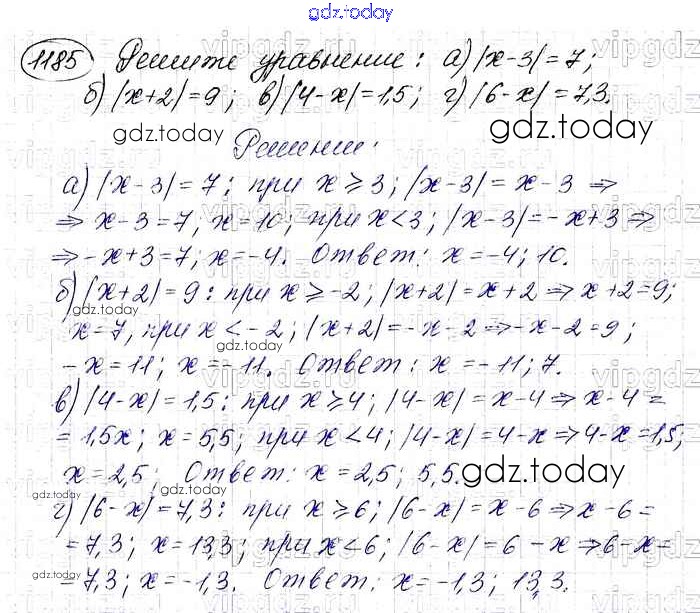 gdz.today
1185 Решите уравнение: а) |x-3|=7;
б) |x+2|=9; в) |4-x|=1,5; г) |6-x|=7,3.
gdz.today gdz.today
Решение:
а) |x-3|=7: при x⩾3; |x-3|=x-3 ⇒
⇒ x-3=7, x=10; при x<3; |x-3|=-x+3 ⇒
⇒ -x+3=7; x=-4. Ответ: x=-4; 10.
б) |x+2|=9: при x⩾-2; |x+2|=x+2 ⇒ x+2=9;
x=7, при x<-2; |x+2|=-x-2 ⇒ -x-2=9;
-x=11; x=-11. Ответ: x=-11; 7.
в) |4-x|=1,5: при x⩾4; |4-x|=x-4 ⇒ x-4=
=1,5x; x=5,5; при x<4; |4-x|=4-x ⇒ 4-x=1,5;
x=2,5; Ответ: x=2,5; 5,5. gdz.today
г) |6-x|=7,3: при x⩾6; |6-x|=x-6 ⇒ x-6=
=7,3; x=13,3; при x<6; |6-x|=6-x ⇒ 6-x=
=7,3; x=-1,3. Ответ: x=-1,3; 13,3.